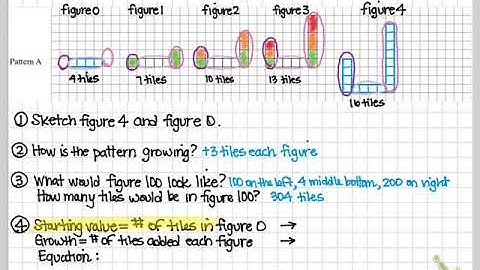 figure 0 figure 1 figure 2 figure 3 figure 4
Pattern A
4 tiles 7 tiles 10 tiles 13 tiles
16 tiles
① Sketch figure 4 and figure 0.
② How is the pattern growing? +3 tiles each figure
③ What would figure 100 look like? 100 on the left, 4 middle bottom, 200 on right
How many tiles would be in figure 100? 304 tiles
④ Starting value = # of tiles in figure 0 →
Growth = # of tiles added each figure →
Equation :